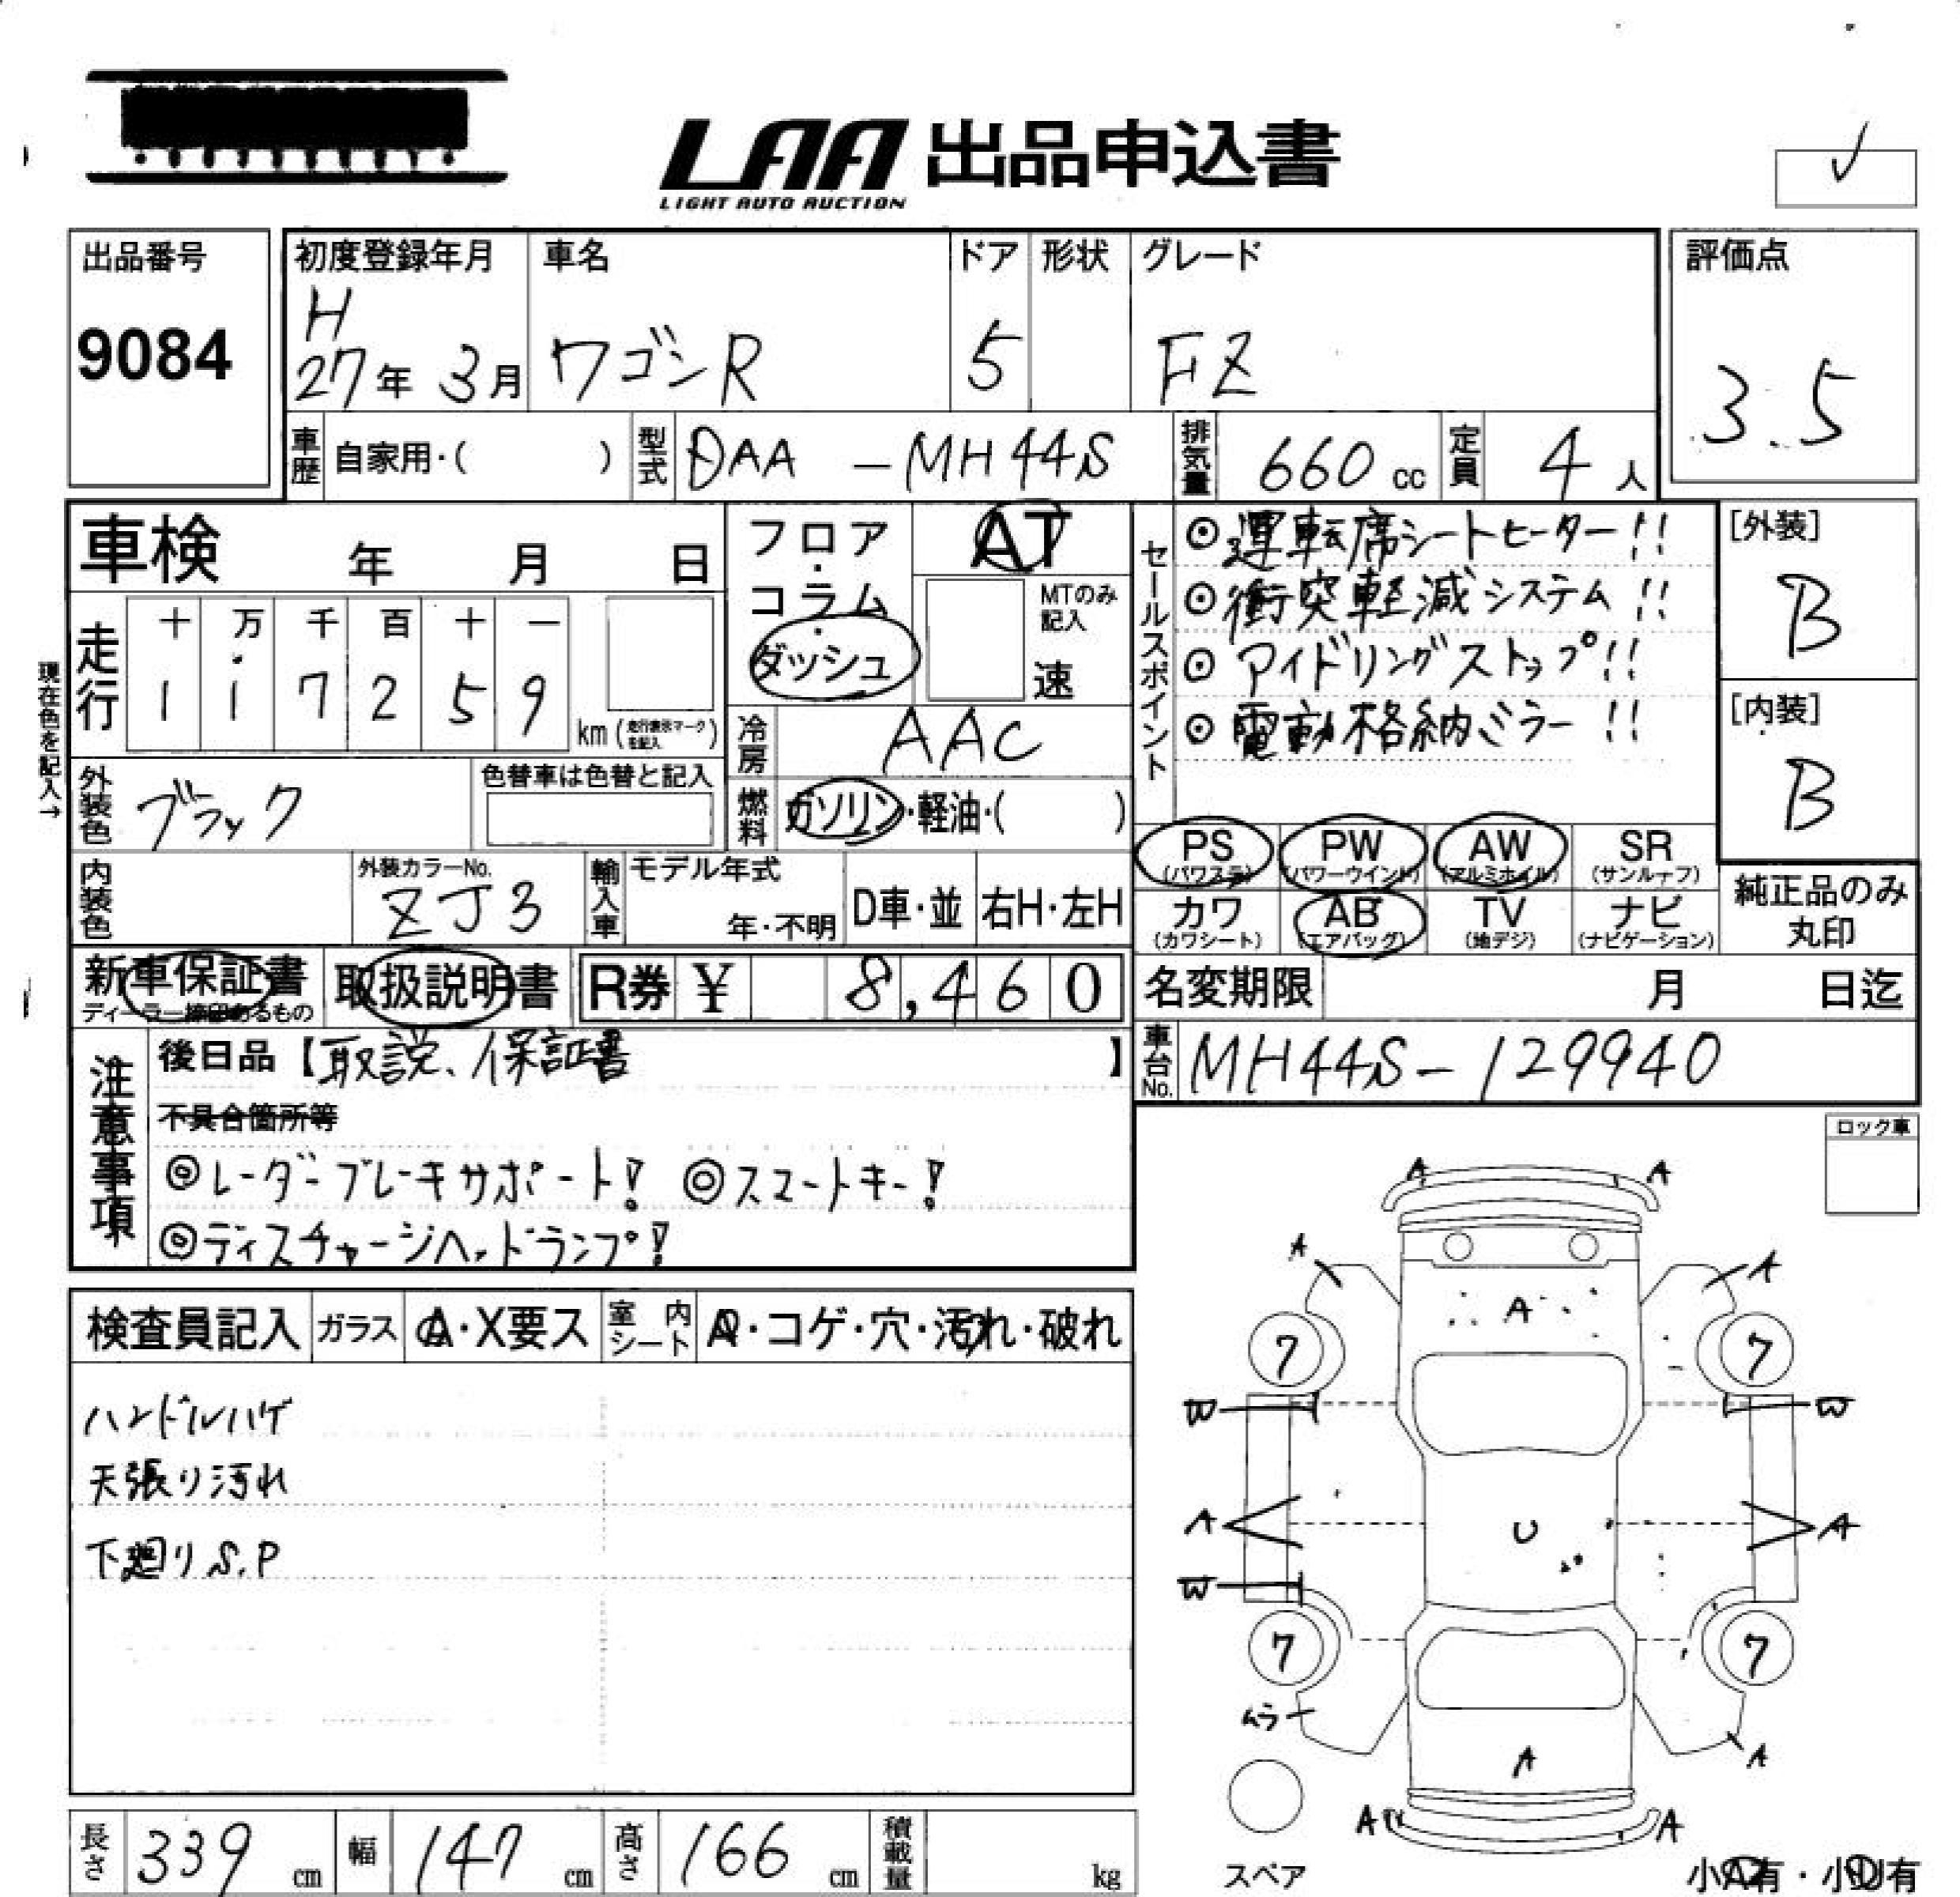 LAA 出品申込書
LIGHT AUTO AUCTION
出品番号
9084
初度登録年月
H
27年 3月
車名
ワゴンR
ドア
5
形状
グレード
FZ
評価点
3.5
車歴 自家用・( )
型式 DAA - MH44S
排気量 660 cc
定員 4 人
車検 年 月 日
フロア・コラム・ダッシュ
AT
MTのみ記入
速
セールスポイント
◎運転席シートヒーター!!
◎衝突軽減システム!!
◎アイドリングストップ!!
◎電動格納ミラー!!
[外装]
B
[内装]
B
現在色を記入→
走行
十 万 千 百 十 一
1 1 7 2 5 9
km(走行表示マークを記入)
冷房 AAC
外装色 ブラック
色替車は色替と記入
燃料 ガソリン・軽油・( )
PS (パワステ)
PW (パワーウインド)
AW (アルミホイル)
SR (サンルーフ)
カワ (カワシート)
AB (エアバッグ)
TV (地デジ)
ナビ (ナビゲーション)
純正品のみ丸印
内装色
外装カラーNo.
ZJ3
輸入車
モデル年式
年・不明
D車・並
右H・左H
新車保証書
ディーラー捺印あるもの
取扱説明書
R券 ¥ 8,460
名変期限 月 日迄
車台No. MH44S-129940
注意事項
後日品【取説、保証書】
不具合箇所等
◎レーダーブレーキサポート! ◎スマートキー!
◎ディスチャージヘッドランプ!
ロック車
検査員記入
ガラス A・X要ス
室内シート ・コゲ・穴・汚れ・破れ
ハンドルハゲ
天張り汚れ
下廻りS.P
A A
A A
A
7 7
W W
A U A
W
7 7
ムラ
A A
A A
スペア
小A有・小U有
長さ 339 cm
幅 147 cm
高さ 166 cm
積載量 kg